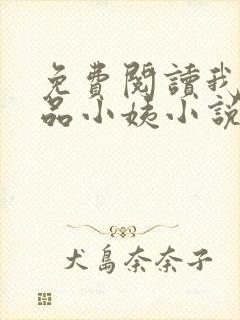 免費閱讀我
品小姨小說
犬島奈奈子